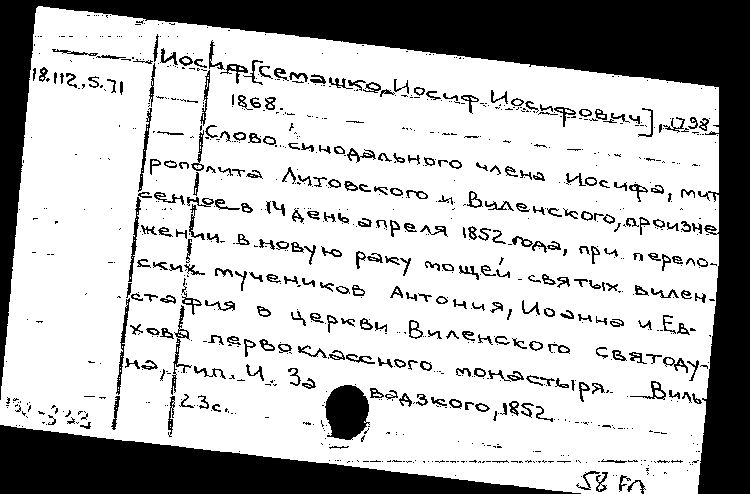 Иосиф [Семашко, Иосиф Иосифович], 1798-
18.112.5.71
1868.
Слово синодального члена Иосифа, мит
рополита Литовского и Виленского, произне
сенное в 14 день апреля 1852 года, при перело-
жении в новую раку мощей святых вилен-
ских мучеников Антония, Иоанна и Ев-
стафия в церкви Виленского святоду-
хова первоклассного монастыря. Виль-
на, тип. И. За вадзкого, 1852
23с.
58